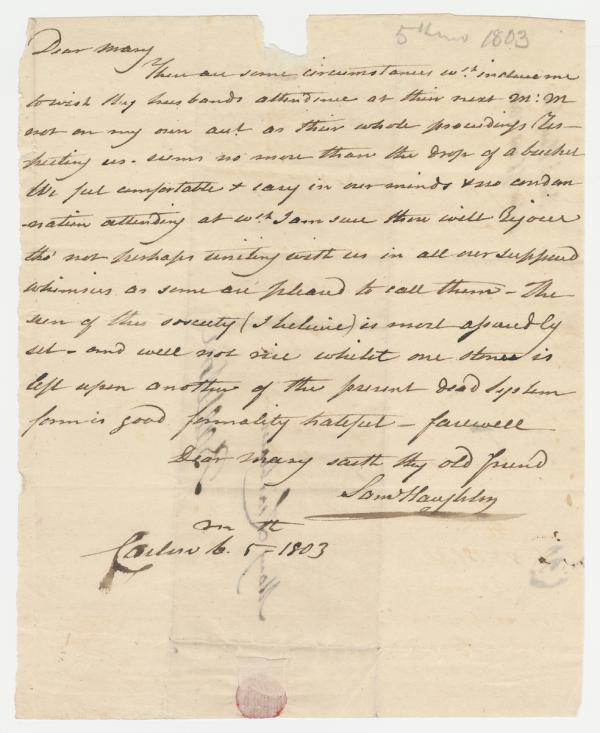 5th mo 1803
Dear Mary
There are some circumstances wch. induce me
to wish thy husbands attendence at their next M: M
not on my own acct. as their whole proceedings Res-
pecting us - seems no more than the drop of a bucket
We feel comfortable & easy in our minds & no condem
-nation attending at wch I am sure thou will Rejoice
tho' not perhaps uniting with us in all our supposed
whimsies as some are pleased to call them - The
sun of this society (I believe) is most assuredly
set - and will not rise whilst one stone is
left upon another of the present dead System
form is good formality hateful - farewell
Dear Mary saith thy old friend
Saml Haughton
m th
Carlow 6. 5 - 1803